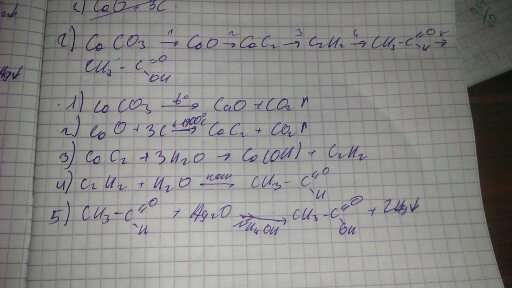 CaO + 3C
2) CaCO3 1→ CaO 2→ CaC2 3→ C2H2 4→ CH3-C=O H 5→
CH3-C=O OH
1) CaCO3 t°→ CaO + CO2↑
2) CaO + 3C 1900°C→ CaC2 + CO2↑
3) CaC2 + 3H2O → Ca(OH) + C2H2
4) C2H2 + H2O → CH3-C=O H
5) CH3-C=O H + Ag2O NH4OH→ CH3-C=O OH + 2Ag↓